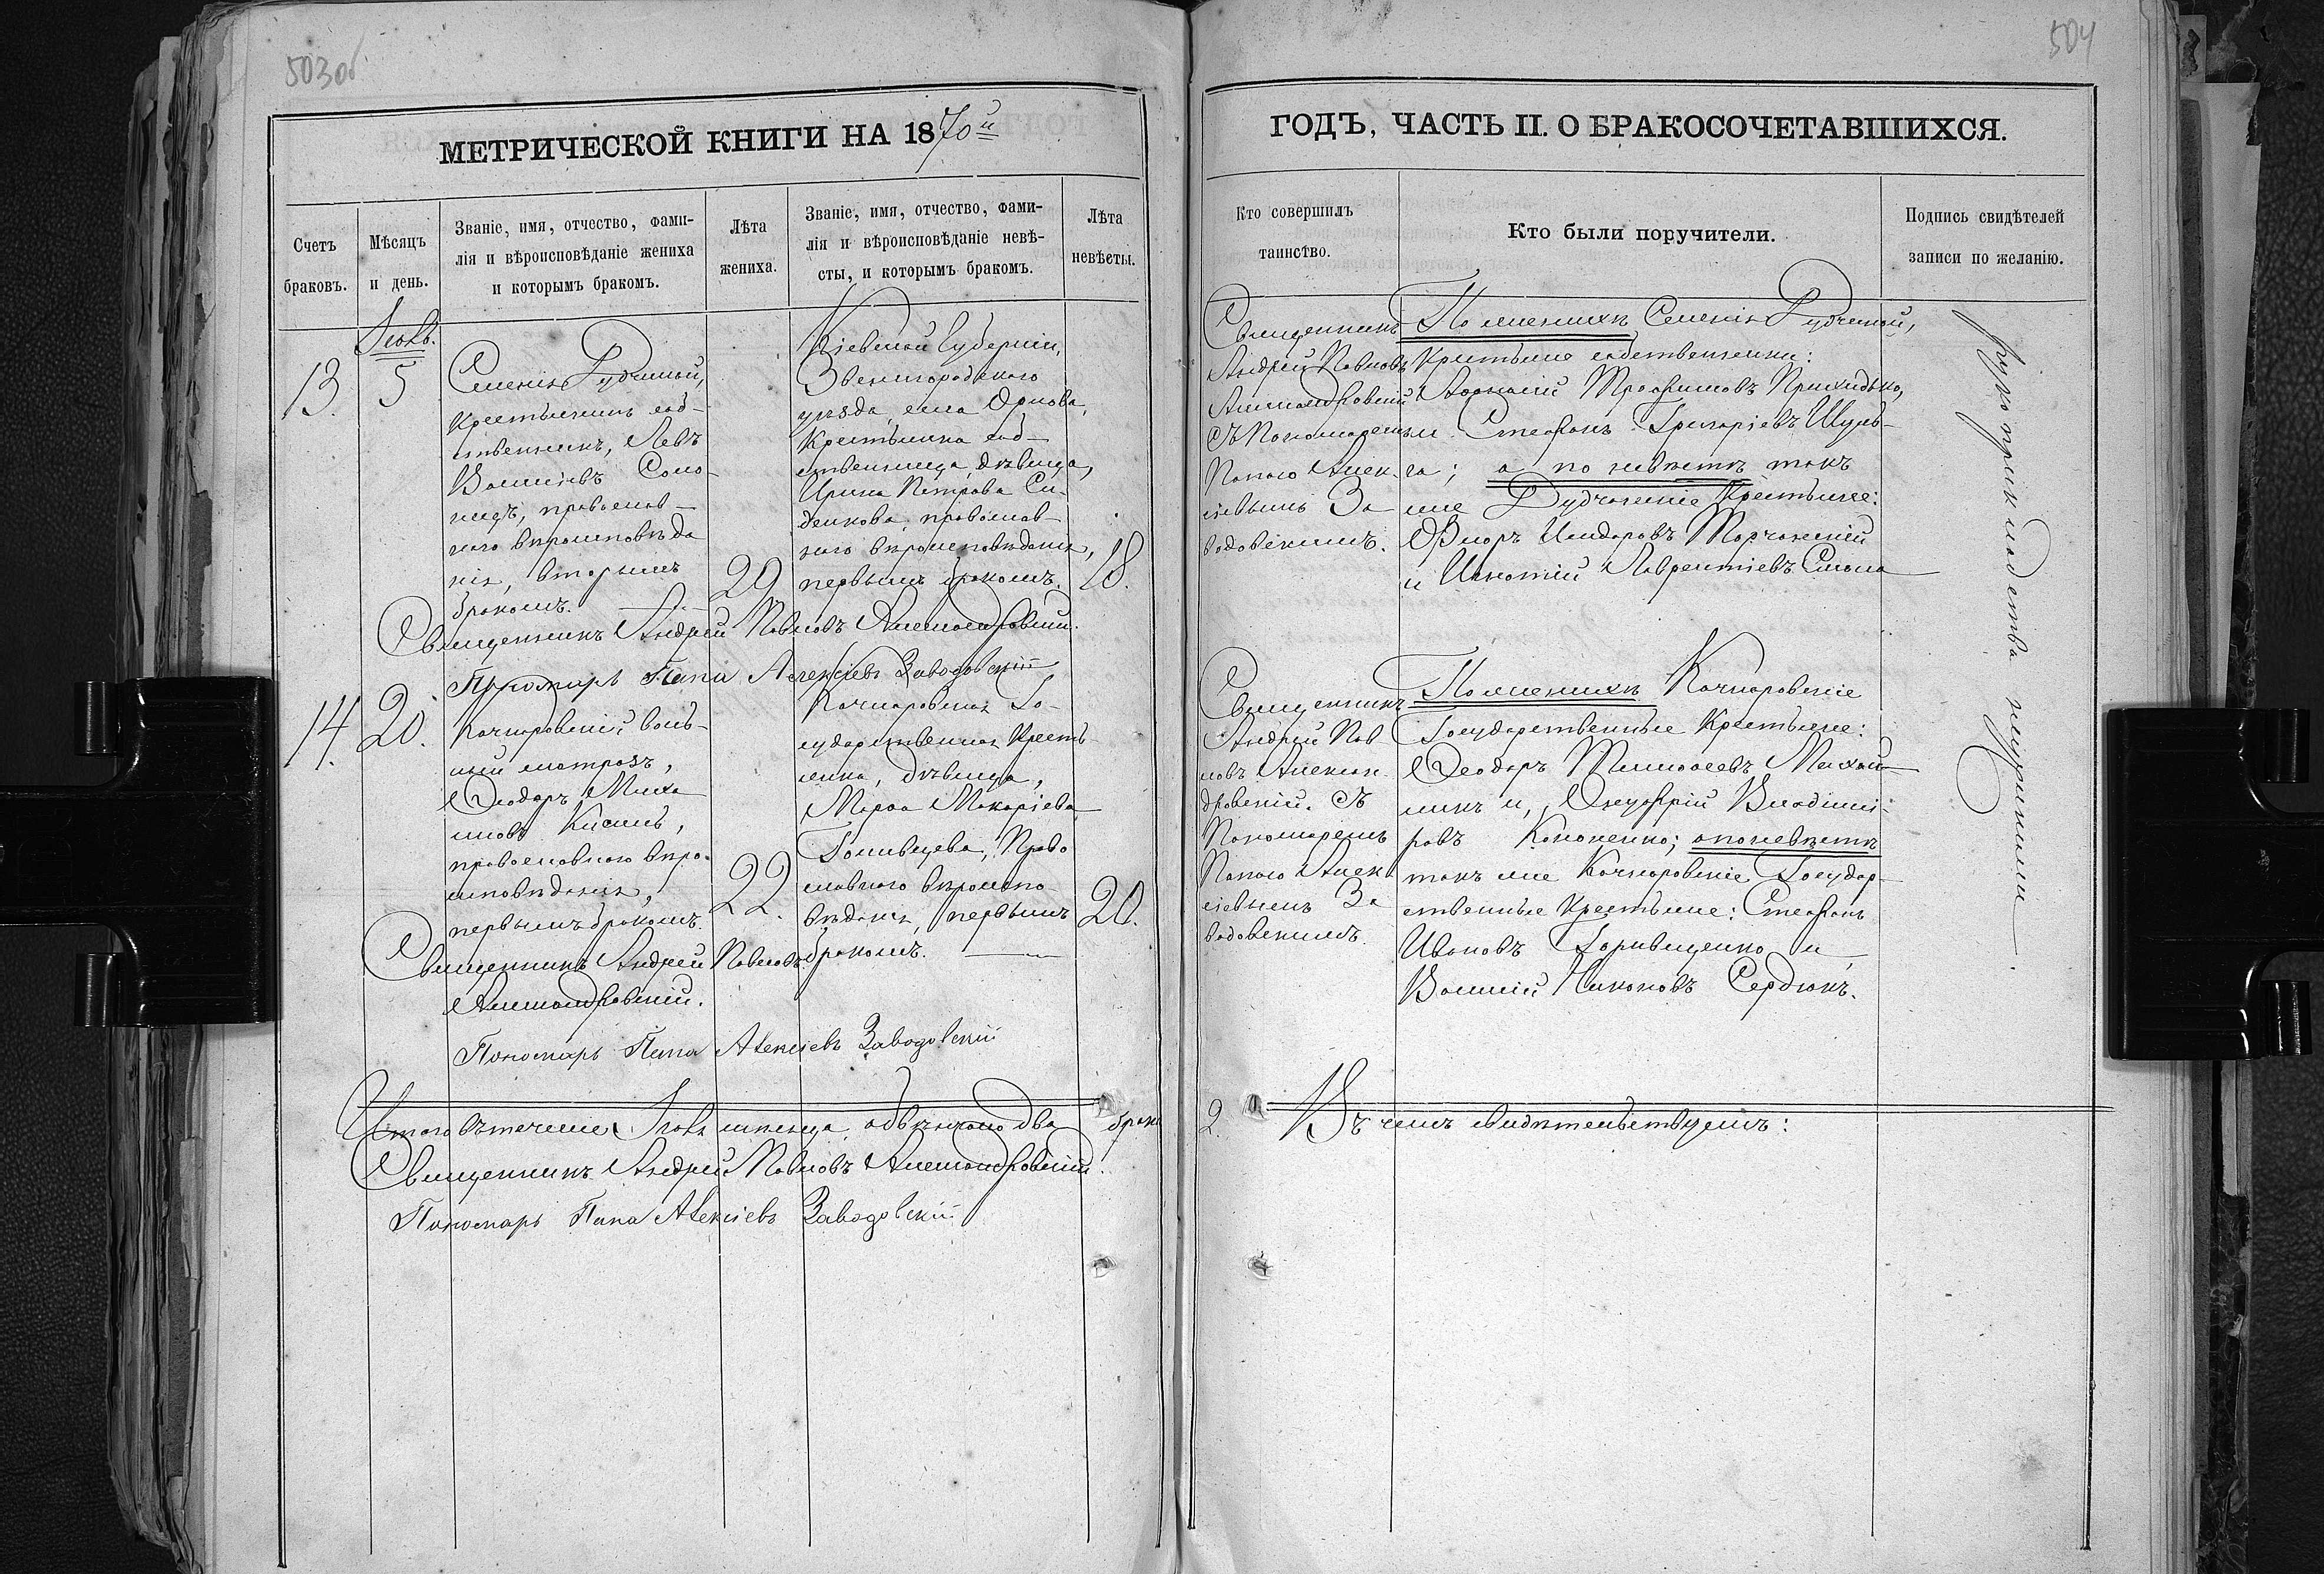 503об
МЕТРИЧЕСКОЙ КНИГИ НА 1870й
Счетъ
браковъ.
Мѣсяцъ
и день.
Званіе, имя, отчество, фами-
лія и вѣроисповѣданіе жениха
и которымъ бракомъ.
Лѣта
жениха.
Званіе, имя, отчество, фами-
лія и вѣроисповѣданіе невѣ-
сты, и которымъ бракомъ.
Лѣта
невѣсты.
13.
5
Крестьянинъ соб-
ственникъ, Левъ
православ-
наго вѣроисповѣда
нія, вторымъ
бракомъ.
29
Кіевской Губерніи,
Звенигородскаго
уѣзда, села
Крестьянка соб-
ственница, дѣвица,
Ирина Петрова Си-
денкова, православ-
наго вѣроисповѣданія,
первымъ бракомъ.
18.
Священникъ Андрей Павловъ Александровскій.
Пономарь Папа Алексіевъ Заводовскій
14.
20.
Качкаровскій воль-
ный матрозъ,
Ѳеодоръ Миха
иловъ
православнаго вѣро-
исповѣданія,
первымъ бракомъ.
22.
Качкаровская Го-
сударственная Кресть
янка, дѣвица,
Марѳа Макаріева
Право
славнаго вѣроиспо-
вѣданія, первымъ
бракомъ.
20.
Священникъ Андрей Павловъ
Александровскій.
Пономарь Папа Алексіевъ Заводовскій
Итого въ теченіе мѣсяца, обвѣнчано два брака
Священникъ Андрей Павловъ Александровскій.
Пономарь Папа Алексіевъ Заводовскій
504
ГОДЪ, ЧАСТЬ II. О БРАКОСОЧЕТАВШИХСЯ.
Кто совершилъ
таинство.
Кто были поручители.
Подпись свидѣтелей
записи по желанію.
Священникъ
Андрей Павловъ
Александровскій
съ Пономаремъ
Папою Алек-
сіевымъ За
водовскимъ.
По женихѣ
Крестьяне собственники:
Аѳанасій Трофимовъ Приходько,
и Стефанъ Григоріевъ Шуль-
га; а по невѣстѣ такъ
же Крестьяне:
и Игнатій Лаврентіевъ
Священникъ
Андрей Пав
ловъ Алексан
дровскій. съ
Пономаремъ
Папою Алек
сіевымъ За
водовскимъ.
По женихѣ Качкаровскіе
Государственные Крестьяне:
Ѳеодоръ Тимоѳеевъ Михай-
ликъ и, Онуфрій Владимі-
ровъ Кононенко; а по невѣстѣ
такъ же Качкаровскіе Государ-
ственные Крестьяне: Стефанъ
Ивановъ и
Василій Никоновъ Сердюкъ.
рукоприкладства не учинили.
2.
Въ чемъ свидѣтельствуемъ: